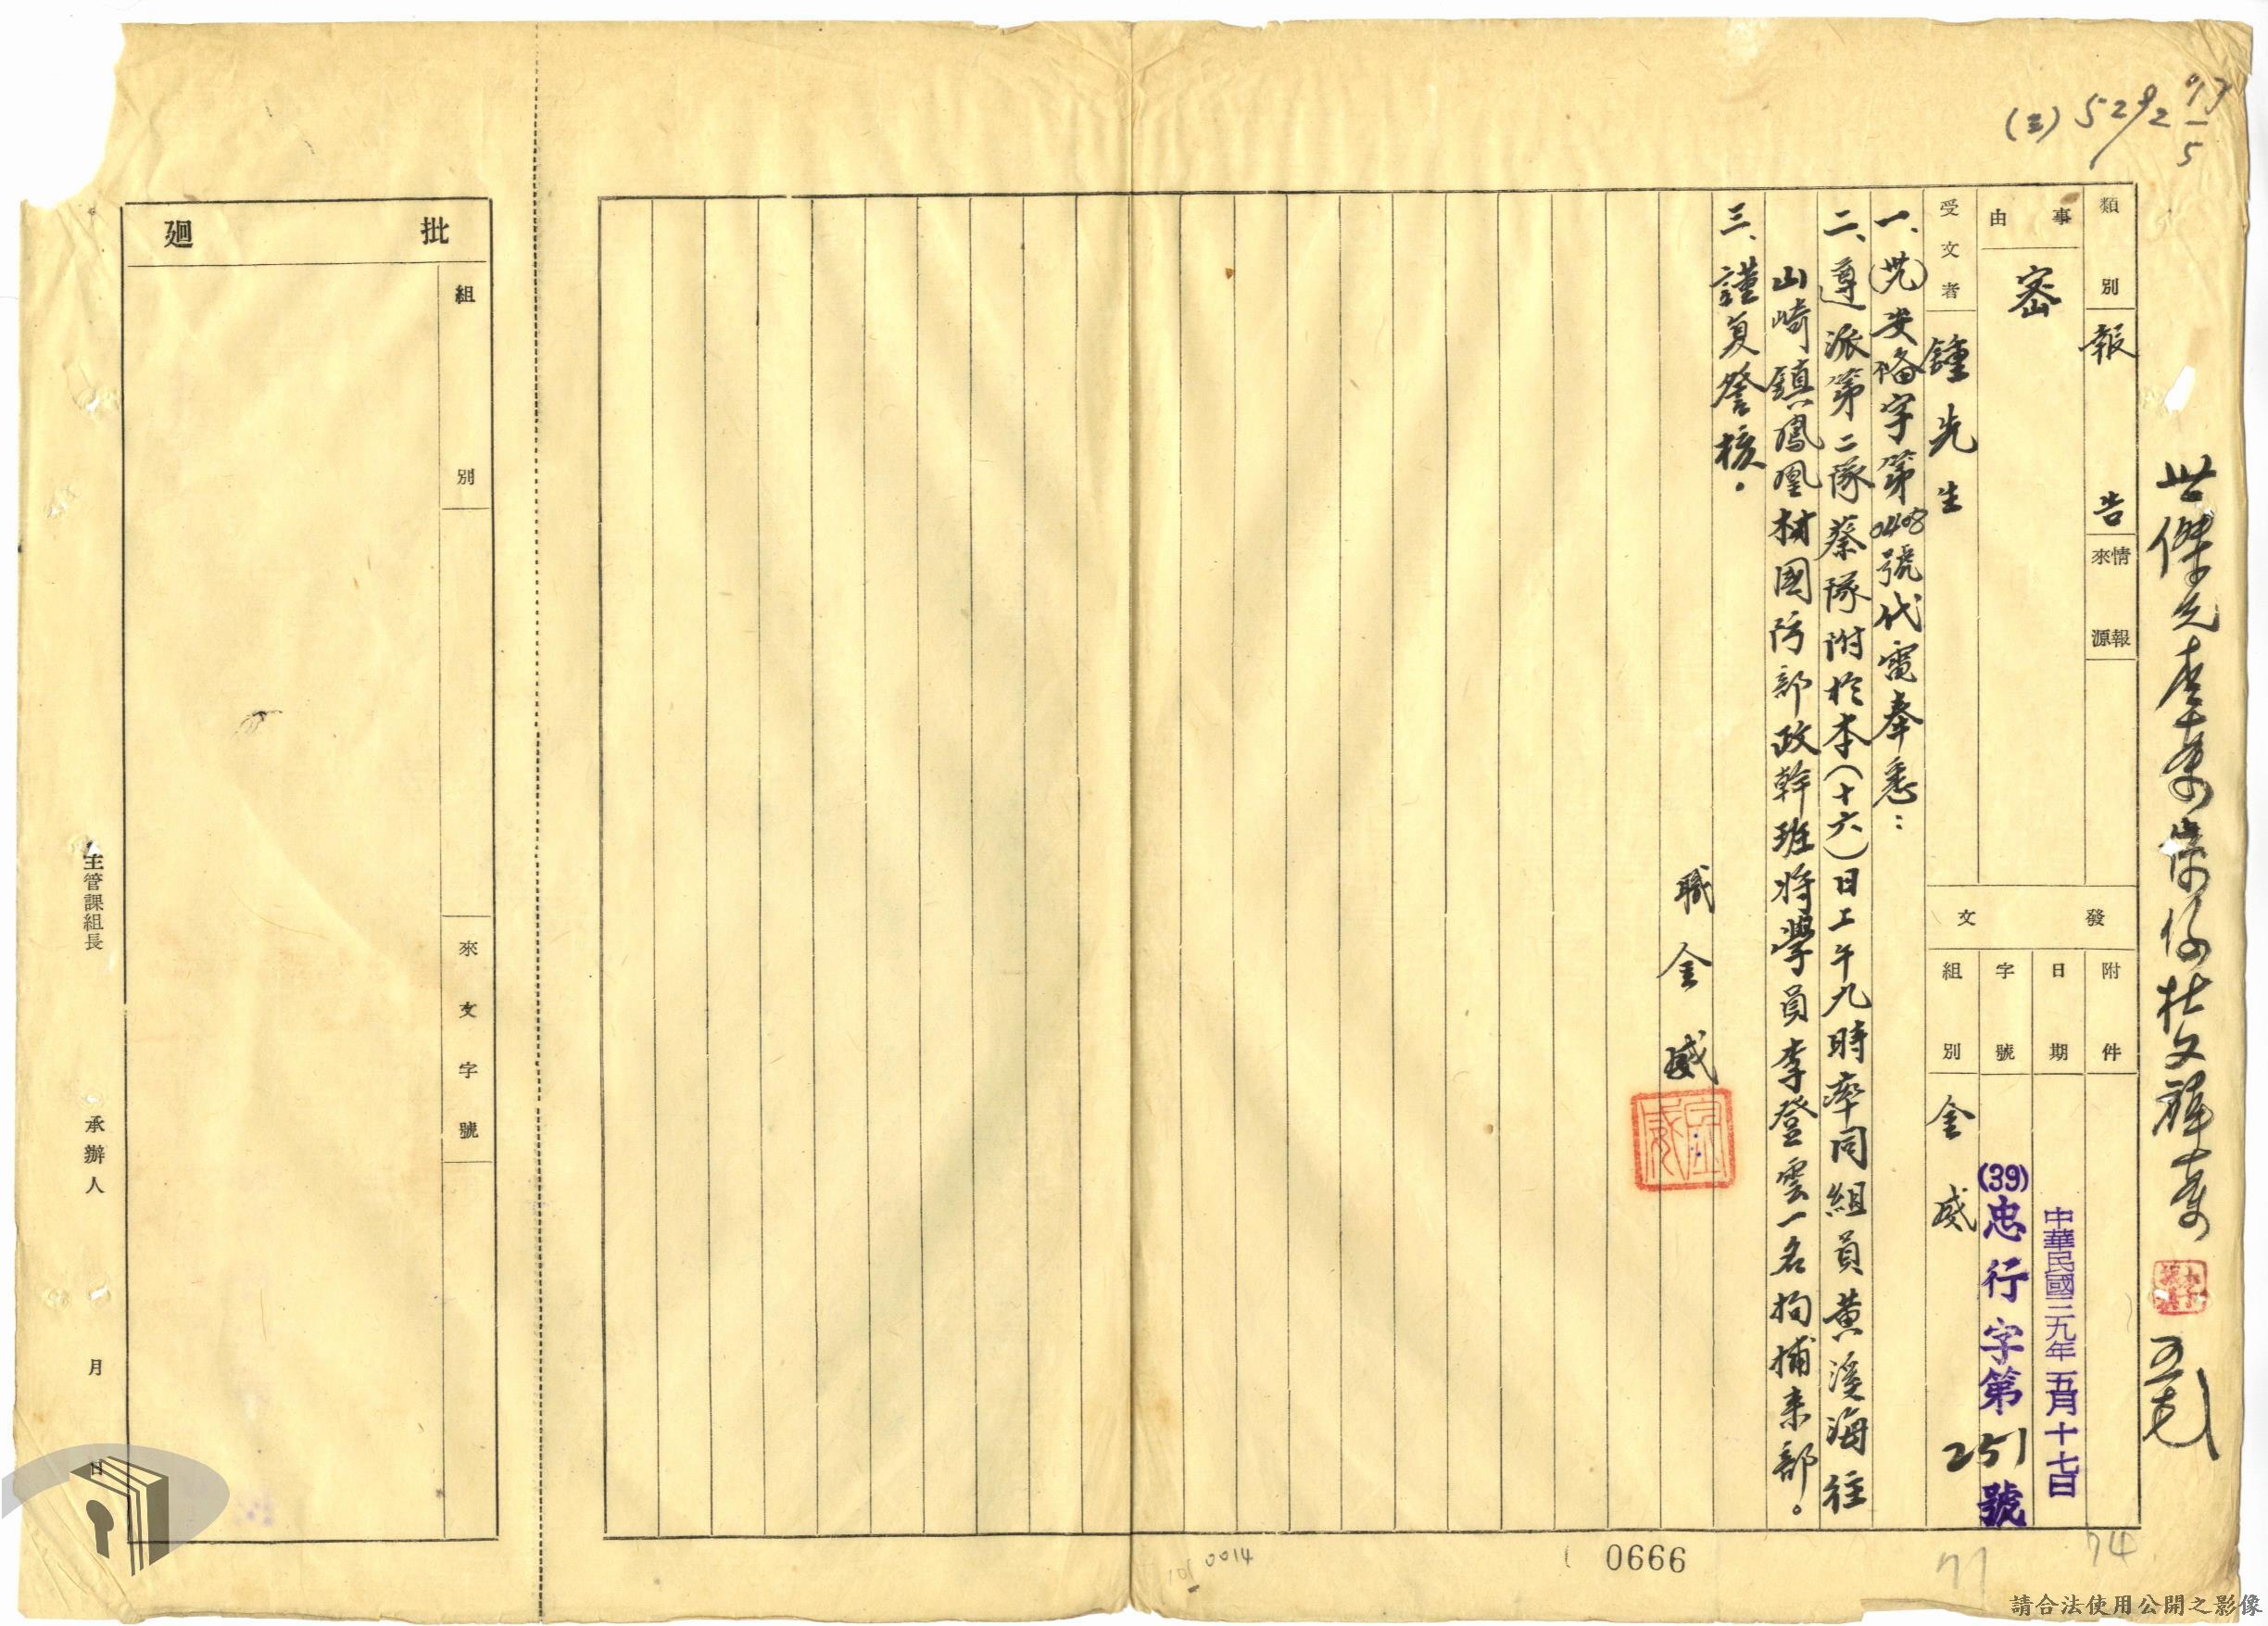 (三) 5292
類別 報告
情報來源
事由 密
受文者 鍾先生
發文
附件
日期 中華民國三九年五月十七日
字號 (39)忠行字第251號
組別 金威
一、(卅九)安俻字第0408號代電奉悉：
二、遵派第二隊蔡隊附於本(十六)日上午九時率同組員黃溪海往
山崎鎮鳳凰村國防部政幹班將學員李登雲一名拘捕来部。
三、謹复詧核。
職 金威
批迴
組別
來文字號
主管課組長
承辦人
月
日
0014
0666
74
請合法使用公開之影像